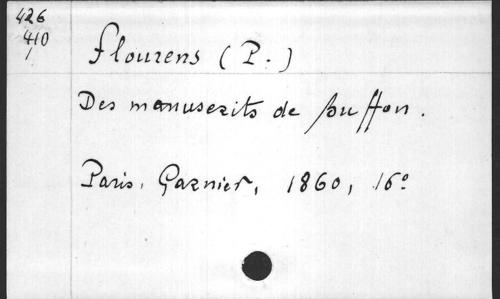 426
410
1
Flourens (P.)
Des manuscrits de Buffon.
Paris, Garnier, 1860, 16º